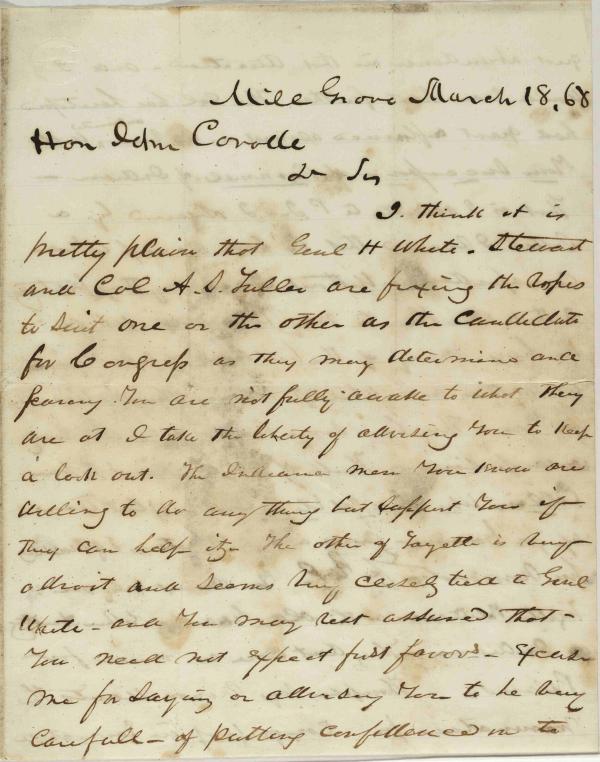 Mill Grove March 18, 68
Hon John Covode
Dr Sir
I think it is
pretty plain that Genl H White - Stewart
and Col A. S. Fuller are fixing the ropes
to suit one or the other as the Candidate
for Congress as they may determine and
fearing You are not fully awake to what they
are at I take the liberty of advising You to keep
a look out. The Indiana men You know are
willing to do any thing but support You if
they can help it - The other of Fayette is very
adroit and seems very closely tied to Genl
White - and You may rest assured that -
You need not expect first favors - Excuse
me for saying or advising You to be very
carefull - of putting confidence in to